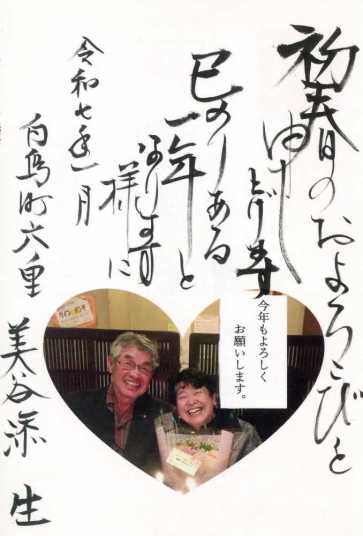 初春のおよろこびと
申し上げます
巳のりある
一年と
なります
様に
令和七年一月
白鳥町六里
美谷添 生
今年もよろしく
お願いします。